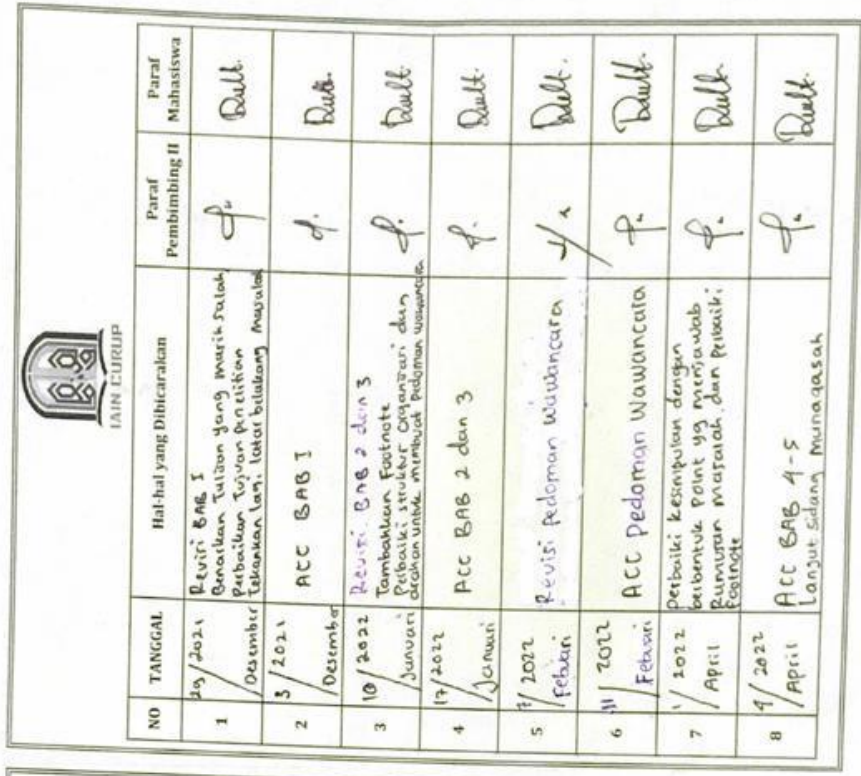 IAIN CURUP
NO TANGGAL Hal-hal yang Dibicarakan Paraf Pembimbing II Paraf Mahasiswa
1 29/2021 /Desember Revisi BAB I
Benarkan Tulisan yang masih salah,
Perbaikan Tujuan penelitian
Tekankan lagi, latar belakang masalah
2 3/2021 /Desember ACC BAB I
3 10/2022 /Januari Revisi BAB 2 dan 3
Tambahkan Footnote
Perbaiki struktur organisasi dan
arahan untuk membuat pedoman wawancara
4 17/2022 /Januari ACC BAB 2 dan 3
5 7/2022 /Februari Revisi Pedoman Wawancara
6 11/2022 /Februari ACC Pedoman Wawancara
7 1/2022 /April Perbaiki Kesimpulan dengan
berbentuk Point yg menjawab
Rumusan masalah, dan perbaiki
Footnote
8 4/2022 /April ACC BAB 4-5
Lanjut Sidang Munaqasah